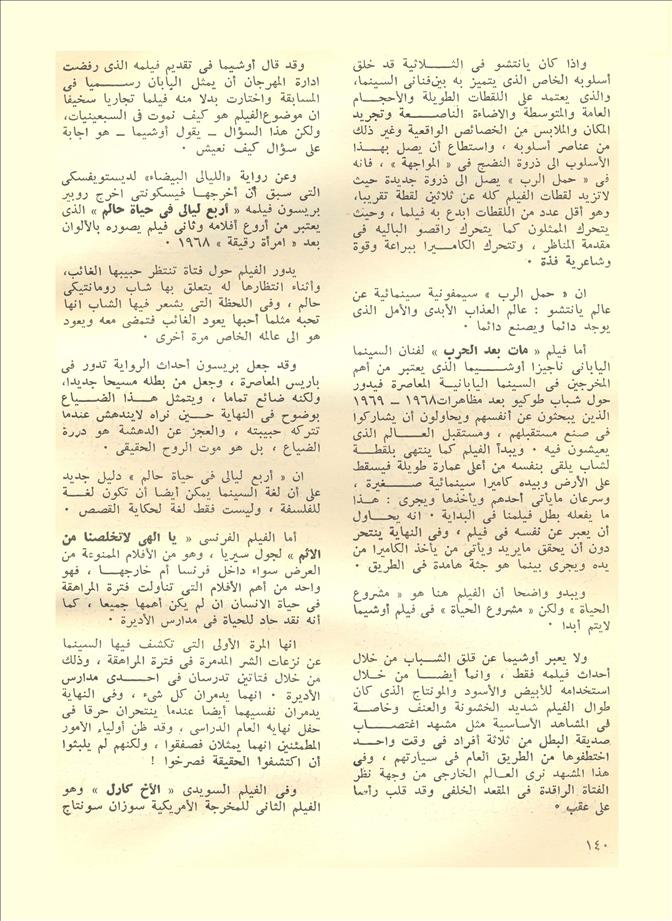 واذا كان يانتشو فى الثـــلاثية قد خلق
أسلوبه الخاص الذى يتميز به بين فنانى السينما،
والذى يعتمد على اللقطات الطويلة والأحجــام
العامة والمتوسطة والاضاءة الناصــعة وتجريد
المكان والملابس من الخصائص الواقعية وغير ذلك
من عناصر أسلوبه ، واستطاع أن يصل بهــذا
الأسلوب الى ذروة النضج فى « المواجهة » ، فانه
فى « حمل الرب » يصل الى ذروة جديدة حيث
لاتزيد لقطات الفيلم كله عن ثلاثين لقطة تقريبا،
وهو أقل عدد من اللقطات ابدع به فيلما ، وحيث
يتحرك الممثلون كما يتحرك راقصو الباليه فى
مقدمة المناظر ، وتتحرك الكامــيرا ببراعة وقوة
وشاعرية فذة ٠
ان « حمل الرب » سيمفونية سينمائية عن
عالم يانتشو : عالم العذاب الأبدى والأمل الذى
يوجد دائما ويصنع دائما ٠
أما فيلم « مات بعد الحرب » لفنان السينما
اليابانى ناجيزا أوشــيما الذى يعتبر من أهم
المخرجين فى السينما اليابانيــة المعاصرة فيدور
حول شباب طوكيو بعد مظاهرات ١٩٦٨ ــ ١٩٦٩
الذين يبحثون عن أنفسهم ويحاولون أن يشاركوا
فى صنع مستقبلهم ، ومستقبل العــالم الذى
يعيشون فيه ٠ ويبدأ الفيلم كما ينتهى بلقطــة
لشاب يلقى بنفسه من أعلى عمارة طويلة فيسقط
على الأرض وبيده كاميرا سينمائية صــغيرة ،
وسرعان مايأتى أحدهم ويأخذها ويجرى : هــذا
ما يفعله بطل فيلمنا فى البداية ٠ انه يحــاول
أن يعبر عن نفسه فى فيلم ، وفى النهاية ينتحر
دون أن يحقق مايريد ويأتى من يأخذ الكاميرا من
يده ويجرى بينما هو جثة هامدة فى الطريق ٠
ويبدو واضحا أن الفيلم هنا هو « مشروع
الحياة » ولكن « مشروع الحياة » فى فيلم أوشيما
لايتم أبدا ٠
ولا يعبر أوشيما عن قلق الشــباب من خلال
أحداث فيلمه فقط ، وانما أيضــا من خــلال
استخدامه للأبيض والأسود والمونتاج الذى كان
طوال الفيلم شديد الخشونة والعنف وخاصــة
فى المشاهد الأساسية مثل مشهد اغتصــاب
صديقة البطل من ثلاثة أفراد فى وقت واحــد
اختطفوها من الطريق العام فى سيارتهم ، وفى
هذا المشهد نرى العــالم الخارجى من وجهة نظر
الفتاة الراقدة فى المقعد الخلفى وقد قلب رأسا
على عقب ٠
وقد قال أوشيما فى تقديم فيلمه الذى رفضت
ادارة المهرجان أن يمثل اليابان رســميا فى
المسابقة واختارت بدلا منه فيلما تجاريا سخيفا
ان موضوع الفيلم هو كيف نموت فى السبعينيات،
ولكن هذا السؤال ــ يقول أوشيما ــ هو اجابة
على سؤال كيف نعيش ٠
وعن رواية «الليالى البيضاء» لديستويفسكى
التى سبق أن أخرجهــا فيسكونتى اخرج روبير
بريسون فيلمه « أربع ليالى فى حياة حالم » الذى
يعتبر من أروع أفلامه وثانى فيلم يصوره بالألوان
بعد « امرأة رقيقة » ١٩٦٨ ٠
يدور الفيلم حول فتاة تنتظر حبيبها الغائب،
وأثناء انتظارها له يتعلق بها شاب رومانتيكى
حالم ، وفى اللحظة التى يشعر فيها الشاب انها
تحبه مثلما أحبها يعود الغائب فتمضى معه ويعود
هو الى عالمه الخاص مرة أخرى ٠
وقد جعل بريسون أحداث الرواية تدور فى
باريس المعاصرة ، وجعل من بطله مسيحا جديدا،
ولكنه ضائع تماما ، ويتمثل هــذا الضــياع
بوضوح فى النهاية حــين نراه لايندهش عندما
تتركه حبيبته ، والعجز عن الدهشة هو ذروة
الضياع ، بل هو موت الروح الحقيقى ٠
ان « أربع ليالى فى حياة حالم » دليل جديد
على أن لغة السينما يمكن أيضا أن تكون لغــة
للفلسفة ، وليست فقط لغة لحكاية القصص ٠
أما الفيلم الفرنسى « يا الهى لاتخلصنا من
الاثم » لجول سيريا ، وهو من الأفلام الممنوعة من
العرض سواء داخل فرنسا أم خارجهــا ، فهو
واحد من أهم الأفلام التى تناولت فترة المراهقة
فى حياة الانسان ان لم يكن أهمها جميعا ، كما
أنه نقد حاد للحياة فى مدارس الأديرة ٠
انها المرة الأولى التى تكشف فيها السينما
عن نزعات الشر المدمرة فى فترة المراهقة ، وذلك
من خلال فتاتين تدرسان فى احــدى مدارس
الأديرة ٠ انهما يدمران كل شىء ، وفى النهاية
يدمران نفسيهما أيضا عندما ينتحران حرقا فى
حفل نهاية العام الدراسى ، وقد ظن أولياء الأمور
المطمئنين انهما يمثلان فصفقوا ، ولكنهم لم يلبثوا
أن اكتشفوا الحقيقة فصرخوا !
وفى الفيلم السويدى « الأخ كارل » وهو
الفيلم الثانى للمخرجة الأمريكية سوزان سونتاج
١٤٠